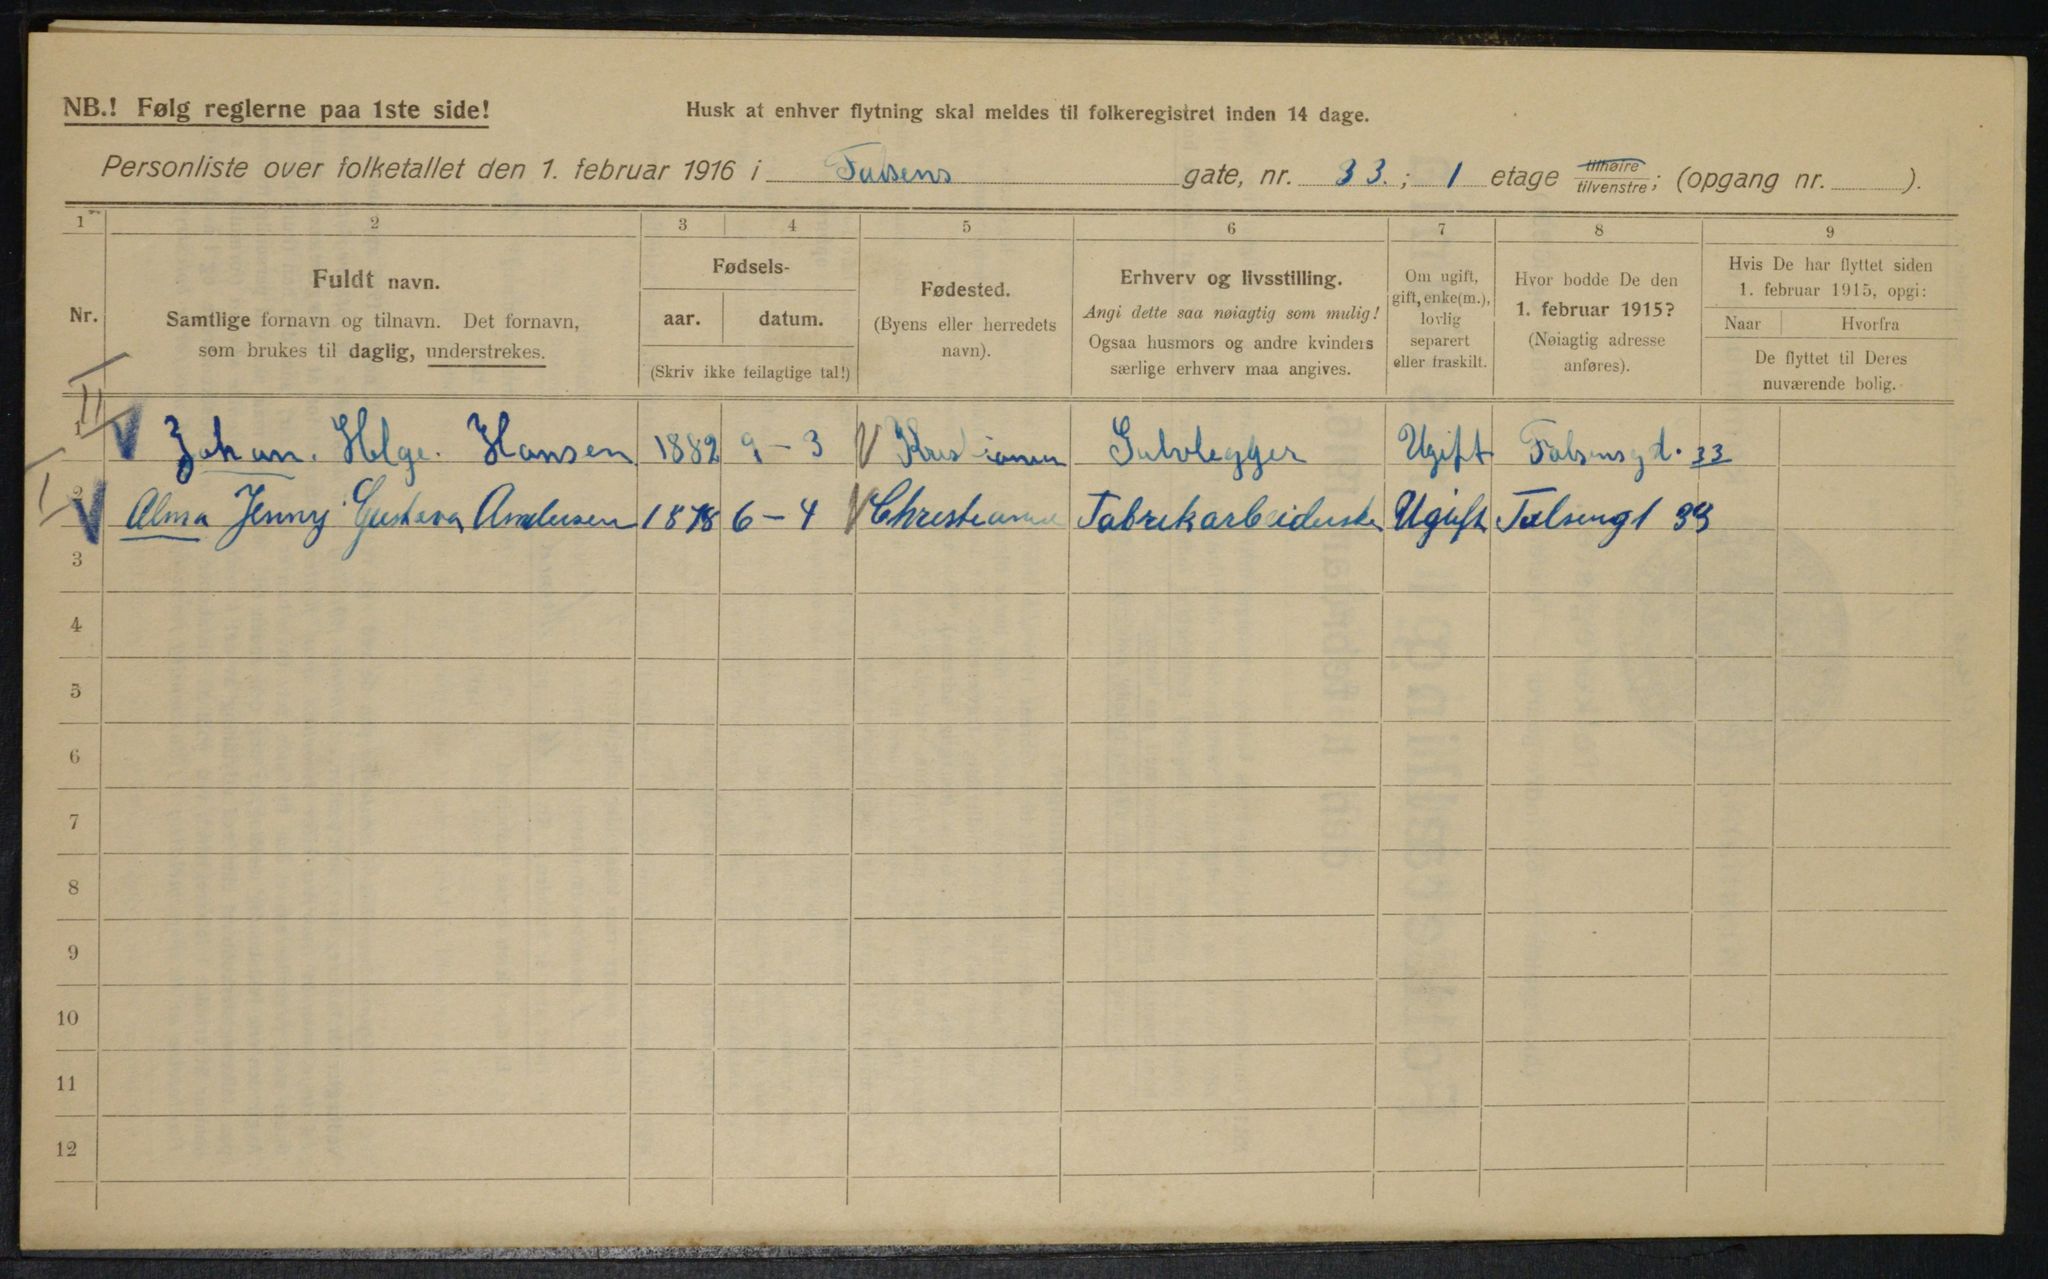 NB.! Følg reglerne paa 1ste side!
Husk at enhver flytning skal meldes til folkeregistret inden 14 dage.
Personliste over folketallet den 1. februar 1916 i Falsens gate, nr. 33. ; 1 etage tilhøire/tilvenstre; (opgang nr. ).
1 2 3 4 5 6 7 8 9
Nr.
Fuldt navn.
Samtlige fornavn og tilnavn. Det fornavn,
som brukes til daglig, understrekes.
Fødsels-
aar. datum.
(Skriv ikke feilagtige tal!)
Fødested.
(Byens eller herredets
navn).
Erhverv og livsstilling.
Angi dette saa nøiagtig som mulig!
Ogsaa husmors og andre kvinders
særlige erhverv maa angives.
Om ugift,
gift, enke(m.),
lovlig
separert
eller fraskilt.
Hvor bodde De den
1. februar 1915?
(Nøiagtig adresse
anføres).
Hvis De har flyttet siden
1. februar 1915, opgi:
Naar Hvorfra
De flyttet til Deres
nuværende bolig.
II
1 Johan. Helge. Hansen 1882 9-3 Kristiania Gulvlegger Ugift Falsensgt. 33
I
2 Alma Jenny Gustava Andersen 1878 6-4 Christiania Fabrikarbeiderske Ugift Falsensgt 33
3
4
5
6
7
8
9
10
11
12